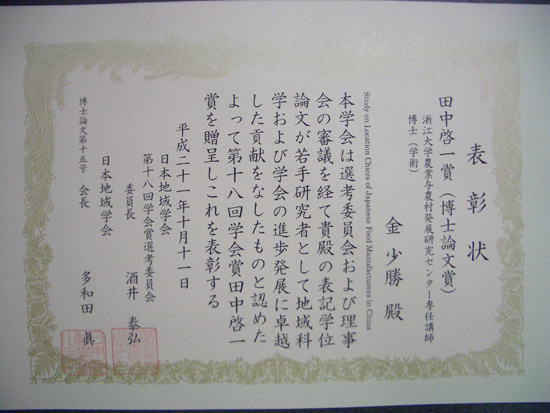 表彰状
田中啓一賞（博士論文賞）
浙江大学農業与農村発展研究センター専任講師
博士（学術）
金 少勝 殿
Study on Location Chices of Japanese Food Manufacturers in China
本学会は選考委員会および理事
会の審議を経て貴殿の表記学位
論文が若手研究者として地域科
学および学会の進歩発展に卓越
した貢献をなしたものと認めた
よって第十八回学会賞田中啓一
賞を贈呈しこれを表彰する
平成二十一年十月十一日
日本地域学会
第十八回学会賞選考委員会
委員長 酒井 泰弘
日本地域学会
会長 多和田 眞
博士論文第十五号